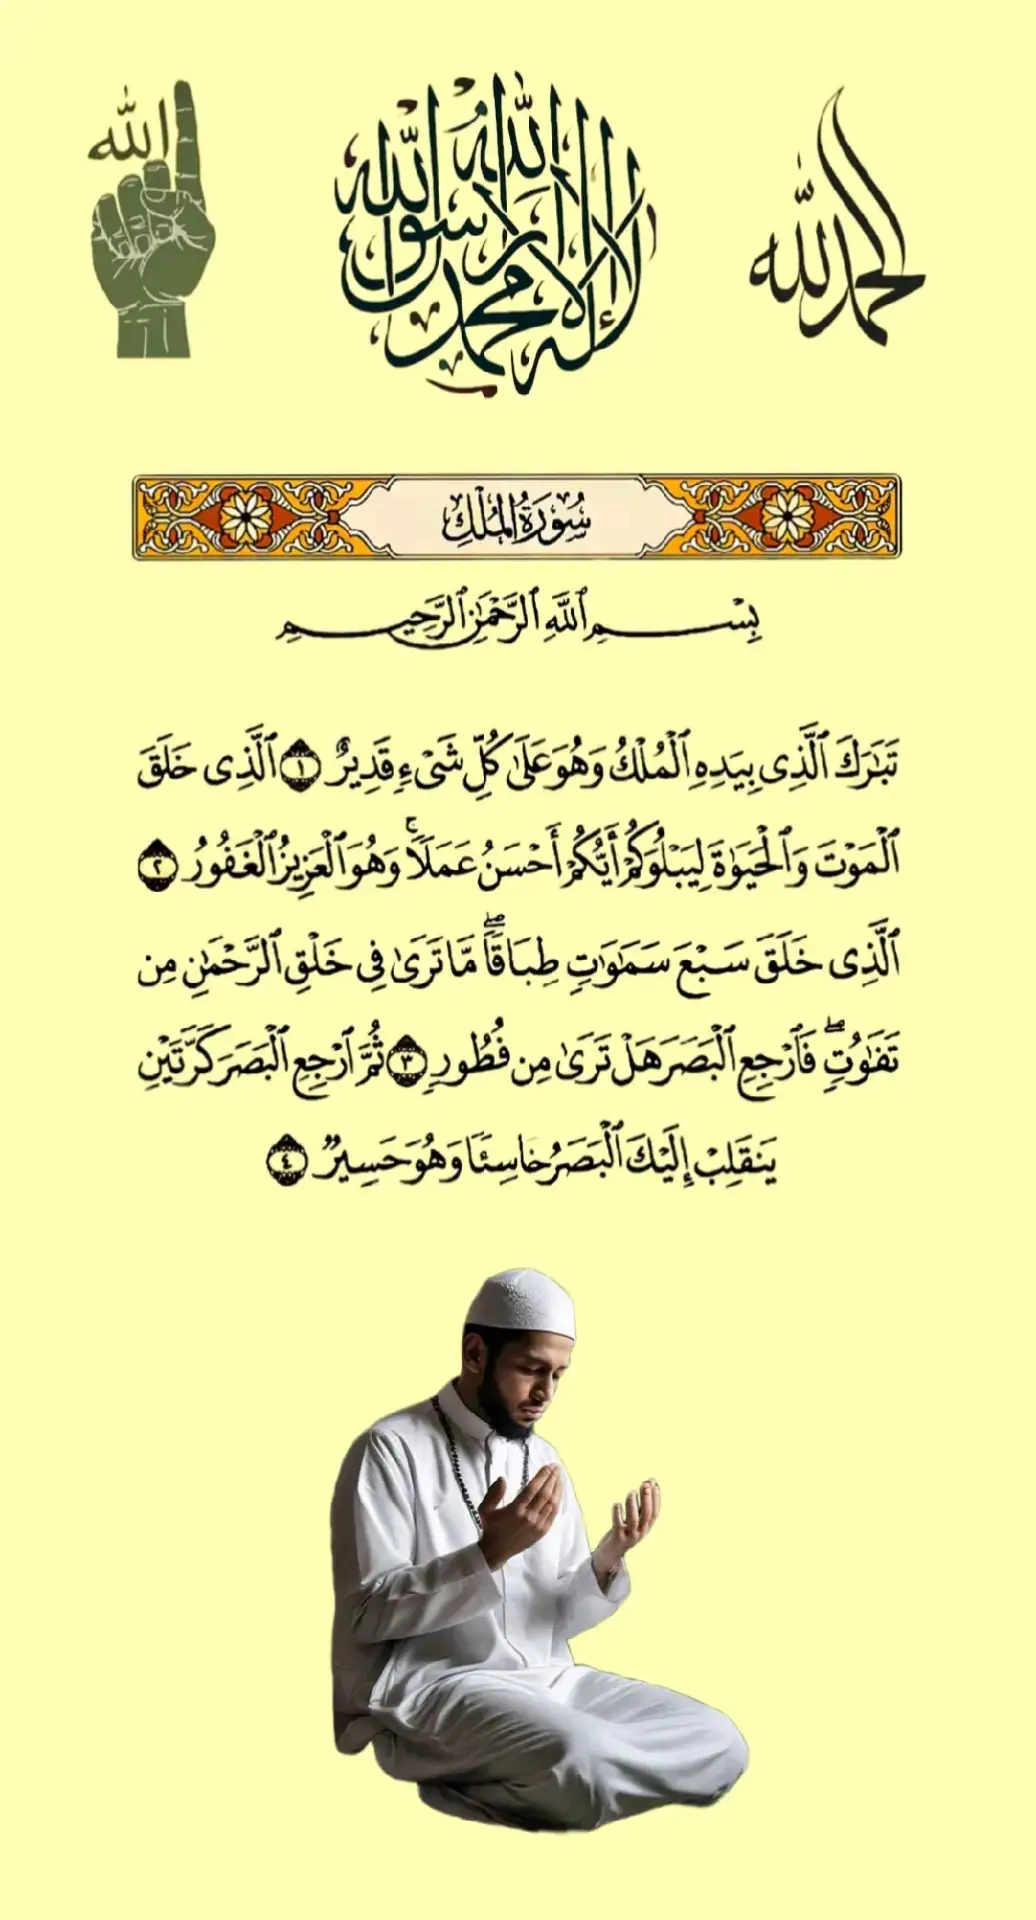 الحمد لله
لا إله إلا الله محمد رسول الله
الله
سُورَةُ المُلْكِ
بِسْمِ ٱللَّهِ ٱلرَّحْمَٰنِ ٱلرَّحِيمِ
تَبَٰرَكَ ٱلَّذِى بِيَدِهِ ٱلْمُلْكُ وَهُوَ عَلَىٰ كُلِّ شَىْءٍ قَدِيرٌ ١ ٱلَّذِى خَلَقَ
ٱلْمَوْتَ وَٱلْحَيَوٰةَ لِيَبْلُوَكُمْ أَيُّكُمْ أَحْسَنُ عَمَلًاۚ وَهُوَ ٱلْعَزِيزُ ٱلْغَفُورُ ٢
ٱلَّذِى خَلَقَ سَبْعَ سَمَٰوَٰتٍ طِبَاقًاۖ مَّا تَرَىٰ فِى خَلْقِ ٱلرَّحْمَٰنِ مِن
تَفَٰوُتٍۖ فَٱرْجِعِ ٱلْبَصَرَ هَلْ تَرَىٰ مِن فُطُورٍ ٣ ثُمَّ ٱرْجِعِ ٱلْبَصَرَ كَرَّتَيْنِ
يَنقَلِبْ إِلَيْكَ ٱلْبَصَرُ خَاسِئًا وَهُوَ حَسِيرٌ ٤